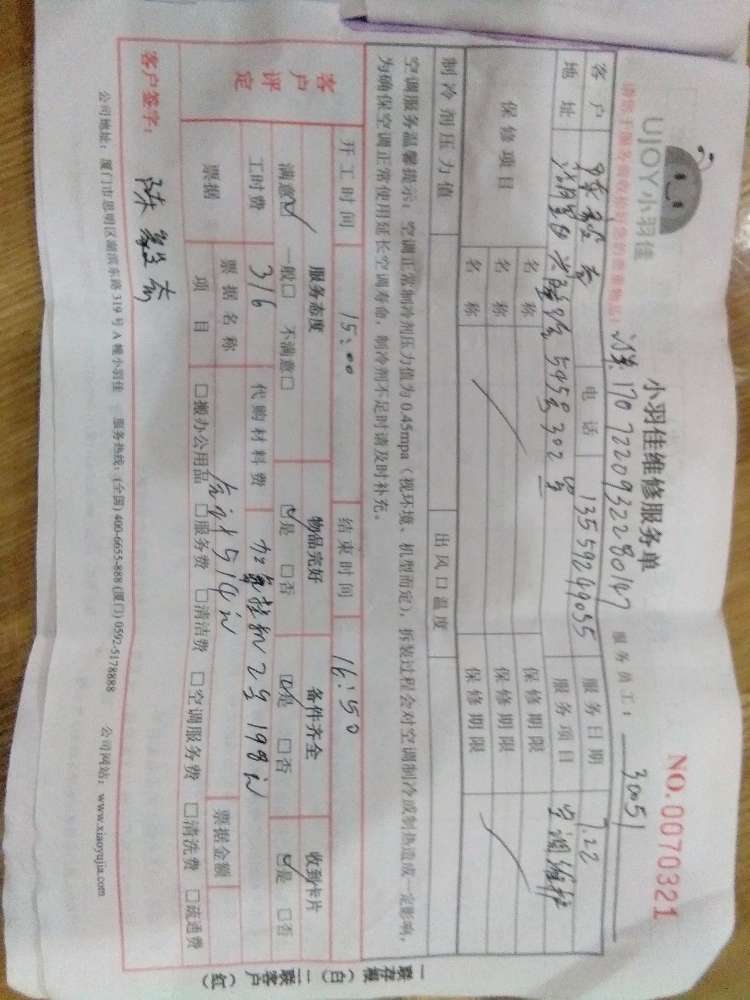 UJOY小羽佳
小羽佳维修服务单
NO.0070321
1707220932280147
服务员工： 3051
客户 陈毅
电话 13559249055
服务日期 7.22
地址 湖里 595号302室
服务项目 空调维护
保修项目
名称 保修期限
名称 保修期限
名称 保修期限
制冷剂压力值 出风口温度
空调服务温馨提示：空调正常制冷剂压力值为0.45mpa（视环境、机型而定），拆装过程会对空调制冷或制热造成一定影响，
为确保空调正常使用延长空调寿命，制冷剂不足时请及时补充。
开工时间 15:00 结束时间 16:50
客户评定
服务态度 物品完好 备件齐全 收到卡片
满意☑ 一般□ 不满意□ ☑是 □否 ☑是 □否 ☑是 □否
工时费 316 代购材料费 加氟 198
票据 票据名称 514 票据金额
项目 □搬办公用品 □服务费 □清洁费 □空调服务费 □清洗费 □疏通费
客户签字： 陈毅
公司地址：厦门市思明区湖滨东路319号A幢小羽佳 服务热线：(全国) 400-6655-888 (厦门) 0592-5178888 公司网站：www.xiaoyujia.com
一联存根（白）二联客户（红）